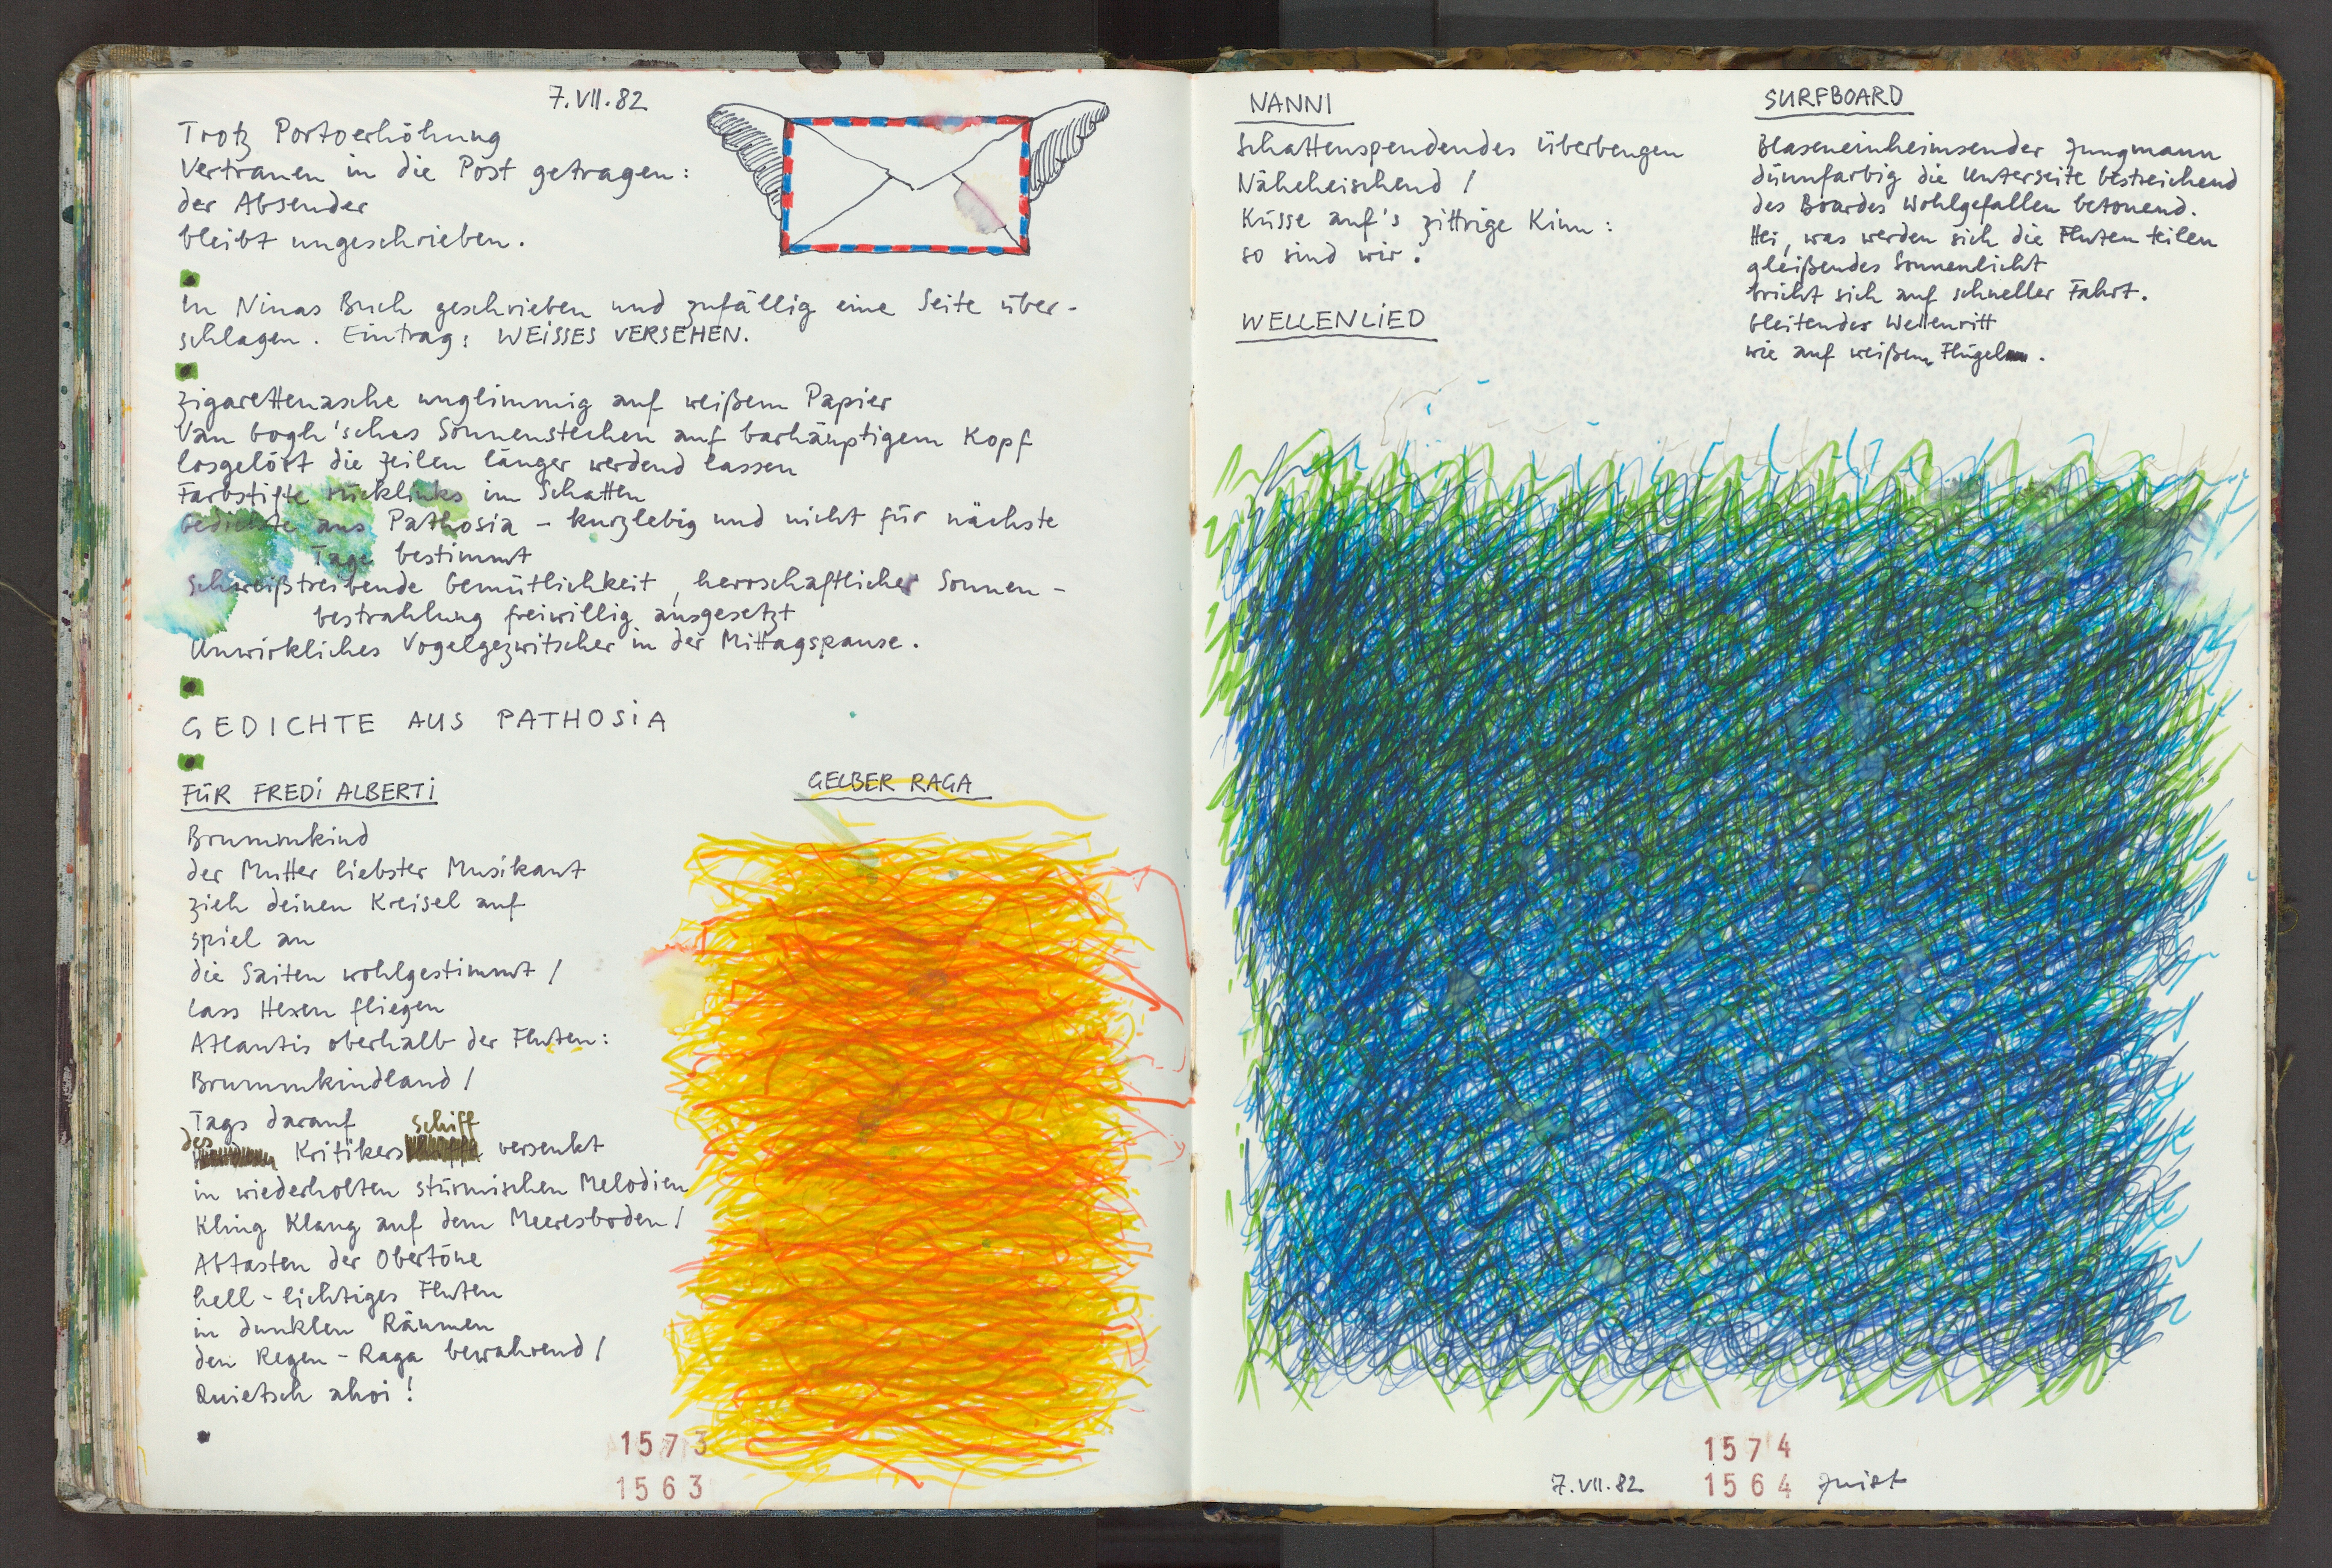 7.VII.82
Trotz Portoerhöhung
Vertrauen in die Post getragen:
der Absender
bleibt ungeschrieben.
In Ninas Buch geschrieben und zufällig eine Seite über-
schlagen. Eintrag: WEISSES VERSEHEN.
Zigarettenasche unglimmig auf weißem Papier
Van Gogh'sches Sonnenstechen auf barhäuptigem Kopf
losgelöst die Zeilen länger werdend lassen
Farbstifte rücklinks im Schatten
Gedichte aus Pathosia - kurzlebig und nicht für nächste
Tage bestimmt
Schweißtreibende Gemütlichkeit, herrschaftlicher Sonnen-
bestrahlung freiwillig ausgesetzt
Unwirkliches Vogelgezwitscher in der Mittagspause.
GEDICHTE AUS PATHOSIA
FÜR FREDI ALBERTI
Brummkind
der Mutter liebster Musikant
zieh deinen Kreisel auf
spiel an
die Saiten wohlgestimmt /
lass Hexen fliegen
Atlantis oberhalb der Fluten:
Brummkindland /
Tags darauf
des Kritikers Schiff versenkt
in wiederholten stürmischen Melodien
Kling Klang auf dem Meeresboden /
Abtasten der Obertöne
hell-lichtiges Fluten
in dunklen Räumen
den Regen-Raga bewahrend /
Quietsch ahoi!
GELBER RAGA
1573
1563
NANNI
Schattenspendendes Überbeugen
Näheheischend /
Küsse auf's zittrige Kinn:
so sind wir.
WELLENLIED
SURFBOARD
Blaseneinheimsender Jungmann
dünnfarbig die Unterseite bestreichend
des Boardes Wohlgefallen betonend.
Hei, was werden sich die Fluten teilen
gleißendes Sonnenlicht
bricht sich auf schneller Fahrt.
Gleitender Wellenritt
wie auf weißem Flügel.
1574
7.VII.82 1564